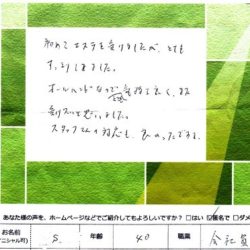 初めてエステを受けましたが、とても
すっきりしました。
オールハンドなので気持ち良く、また
受けたいと思いました。
スタッフさんの対応も、良かったです。
あなた様の声を、ホームページなどでご紹介してもよろしいですか？ □はい ☑匿名で □ダメ
お名前 S. 年齢 40 職業 会社員
(イニシャル可)